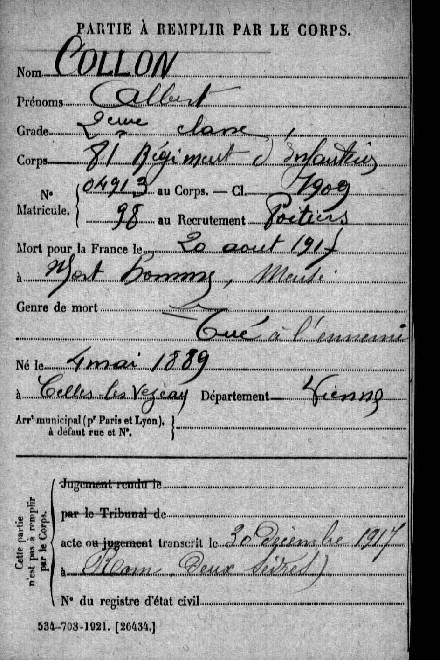 PARTIE À REMPLIR PAR LE CORPS.
Nom COLLON
Prénoms Albert
Grade 2ème classe
Corps 81 Régiment d'Infanterie
N° Matricule. 04913 au Corps. — Cl. 1909
98 au Recrutement Poitiers
Mort pour la France le 20 aout 1917
à Mort Homme, Meuse
Genre de mort
Tué à l'ennemi
Né le 4 mai 1889
à Celles les Vezeay Département Vienne
Arrt municipal (pr Paris et Lyon),
à défaut rue et N°.
Cette partie n'est pas à remplir par le Corps.
Jugement rendu le
par le Tribunal de
acte ou jugement transcrit le 30 Décembre 1917
à Rom (Deux Sèvres)
N° du registre d'état civil
534-708-1921. [26434.]